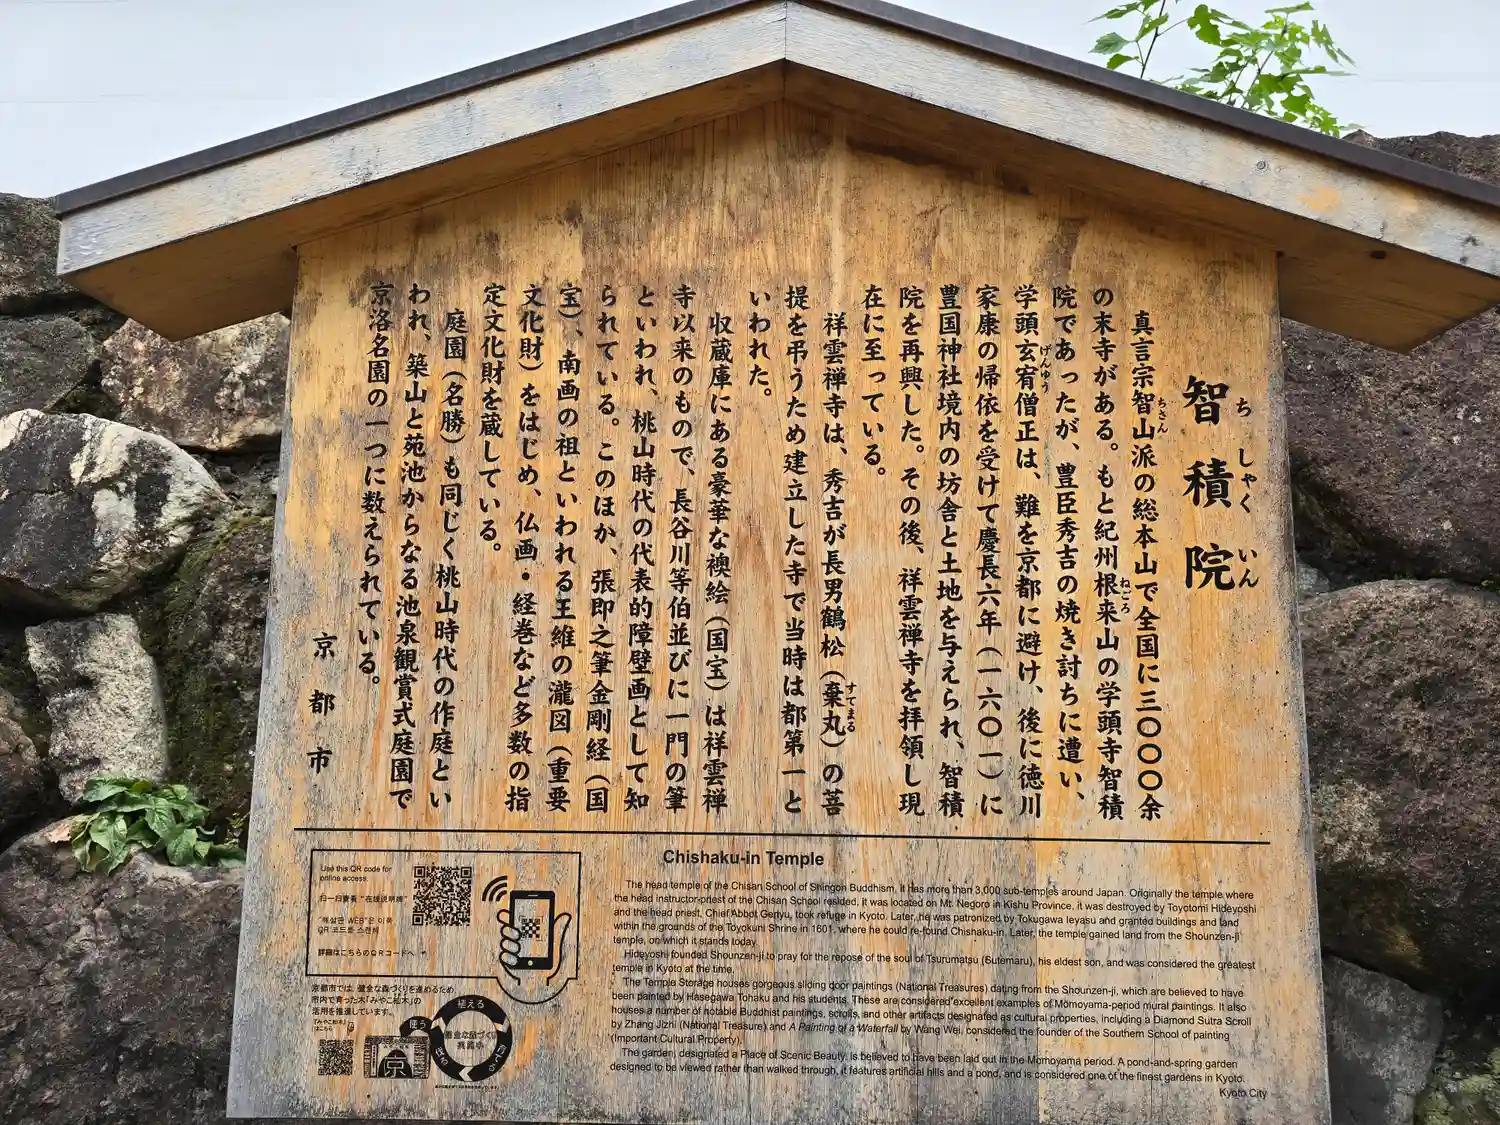 智積院
ちしゃくいん
真言宗智山派の総本山で全国に三〇〇〇余
ちさん
の末寺がある。もと紀州根来山の学頭寺智積
ねごろ
院であったが、豊臣秀吉の焼き討ちに遭い、
学頭玄宥僧正は、難を京都に避け、後に徳川
げんゆう
家康の帰依を受けて慶長六年(一六〇一)に
豊国神社境内の坊舎と土地を与えられ、智積
院を再興した。その後、祥雲禅寺を拝領し現
在に至っている。
祥雲禅寺は、秀吉が長男鶴松(棄丸)の菩
すてまる
提を弔うため建立した寺で当時は都第一と
いわれた。
収蔵庫にある豪華な襖絵(国宝)は祥雲禅
寺以来のもので、長谷川等伯並びに一門の筆
といわれ、桃山時代の代表的障壁画として知
られている。このほか、張即之筆金剛経(国
宝)、南画の祖といわれる王維の瀧図(重要
文化財)をはじめ、仏画・経巻など多数の指
定文化財を蔵している。
庭園(名勝)も同じく桃山時代の作庭とい
われ、築山と苑池からなる池泉観賞式庭園で
京洛名園の一つに数えられている。
京都市
Use this QR code for
online access.
扫一扫查看"在线说明牌"
"해설판 WEB"은 이쪽
QR 코드를 스캔해
詳細はこちらのQRコードへ
京都市では、健全な森づくりを進めるため、
市内で育った木「みやこ杣木」の
活用を推進しています。
「みやこ杣木」
はこちら
植える
使う
育てる
健全な森づくり
京
Chishaku-in Temple
The head temple of the Chisan School of Shingon Buddhism, it has more than 3,000 sub-temples around Japan. Originally the temple where
the head instructor-priest of the Chisan School resided, it was located on Mt. Negoro in Kishu Province, it was destroyed by Toyotomi Hideyoshi
and the head priest, Chief Abbot Genyu, took refuge in Kyoto. Later, he was patronized by Tokugawa Ieyasu and granted buildings and land
within the grounds of the Toyokuni Shrine in 1601, where he could re-found Chishaku-in. Later, the temple gained land from the Shounzen-ji
temple, on which it stands today.
Hideyoshi founded Shounzen-ji to pray for the repose of the soul of Tsurumatsu (Sutemaru), his eldest son, and was considered the greatest
temple in Kyoto at the time.
The Temple Storage houses gorgeous sliding door paintings (National Treasures) dating from the Shounzen-ji, which are believed to have
been painted by Hasegawa Tohaku and his students. These are considered excellent examples of Momoyama-period mural paintings. It also
houses a number of notable Buddhist paintings, scrolls, and other artifacts designated as cultural properties, including a Diamond Sutra Scroll
by Zhang Jizhi (National Treasure) and A Painting of a Waterfall by Wang Wei, considered the founder of the Southern School of painting
(Important Cultural Property).
The garden, designated a Place of Scenic Beauty, is believed to have been laid out in the Momoyama period. A pond-and-spring garden
designed to be viewed rather than walked through, it features artificial hills and a pond, and is considered one of the finest gardens in Kyoto.
Kyoto City